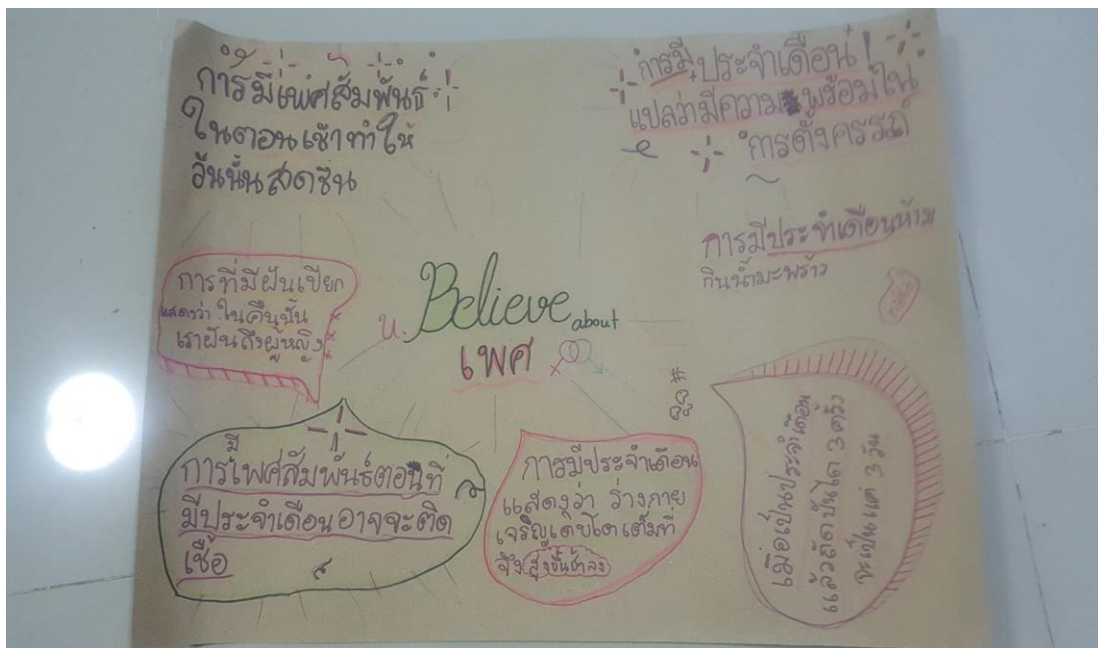 การมีเพศสัมพันธ์
ในตอนเช้าทำให้
วันนั้นสดชื่น
การมีประจำเดือน!
แปลว่ามีความพร้อมใน
การตั้งครรถ์
การมีประจำเดือนห้าม
กินน้ำมะพร้าว
การที่มีฝันเปียก
แสดงว่า ในคืนนั้น
เราฝันถึงผู้หญิง
u. Believe about
เพศ
การมีเพศสัมพันธ์ตอนที่
มีประจำเดือนอาจจะติด
เชื้อ
การมีประจำเดือน
แสดงว่า ร่างกาย
เจริญเติบโตเต็มที่
จึงสูงขึ้นช้าลง
เมื่อเป็นประจำเดือน
แล้วถัดบันได 3 ครั้ง
จะเป็นแค่ 3 วัน